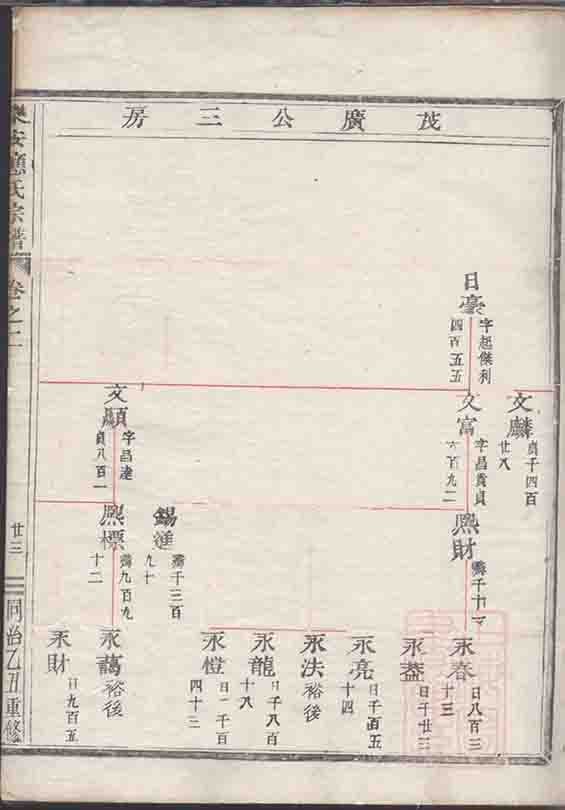 茂廣公三房
日豪
字起傑利
四百五五
文麟
貞千四百
廿八
文富
字昌貴貞
六百九二
文顯
字昌達
貞八百一
熈財
錫進
霽千三百
九十
熈標
霽九百九
十二
永春
日八百三
十三
永益
日千廿三
永亮
日千百五
十四
永法
裕後
永龍
日千八百
十八
永愷
日一千百
四十三
永藹
裕後
永財
日九百五
樂安應氏宗譜
卷之二
廿三
同治乙丑重修